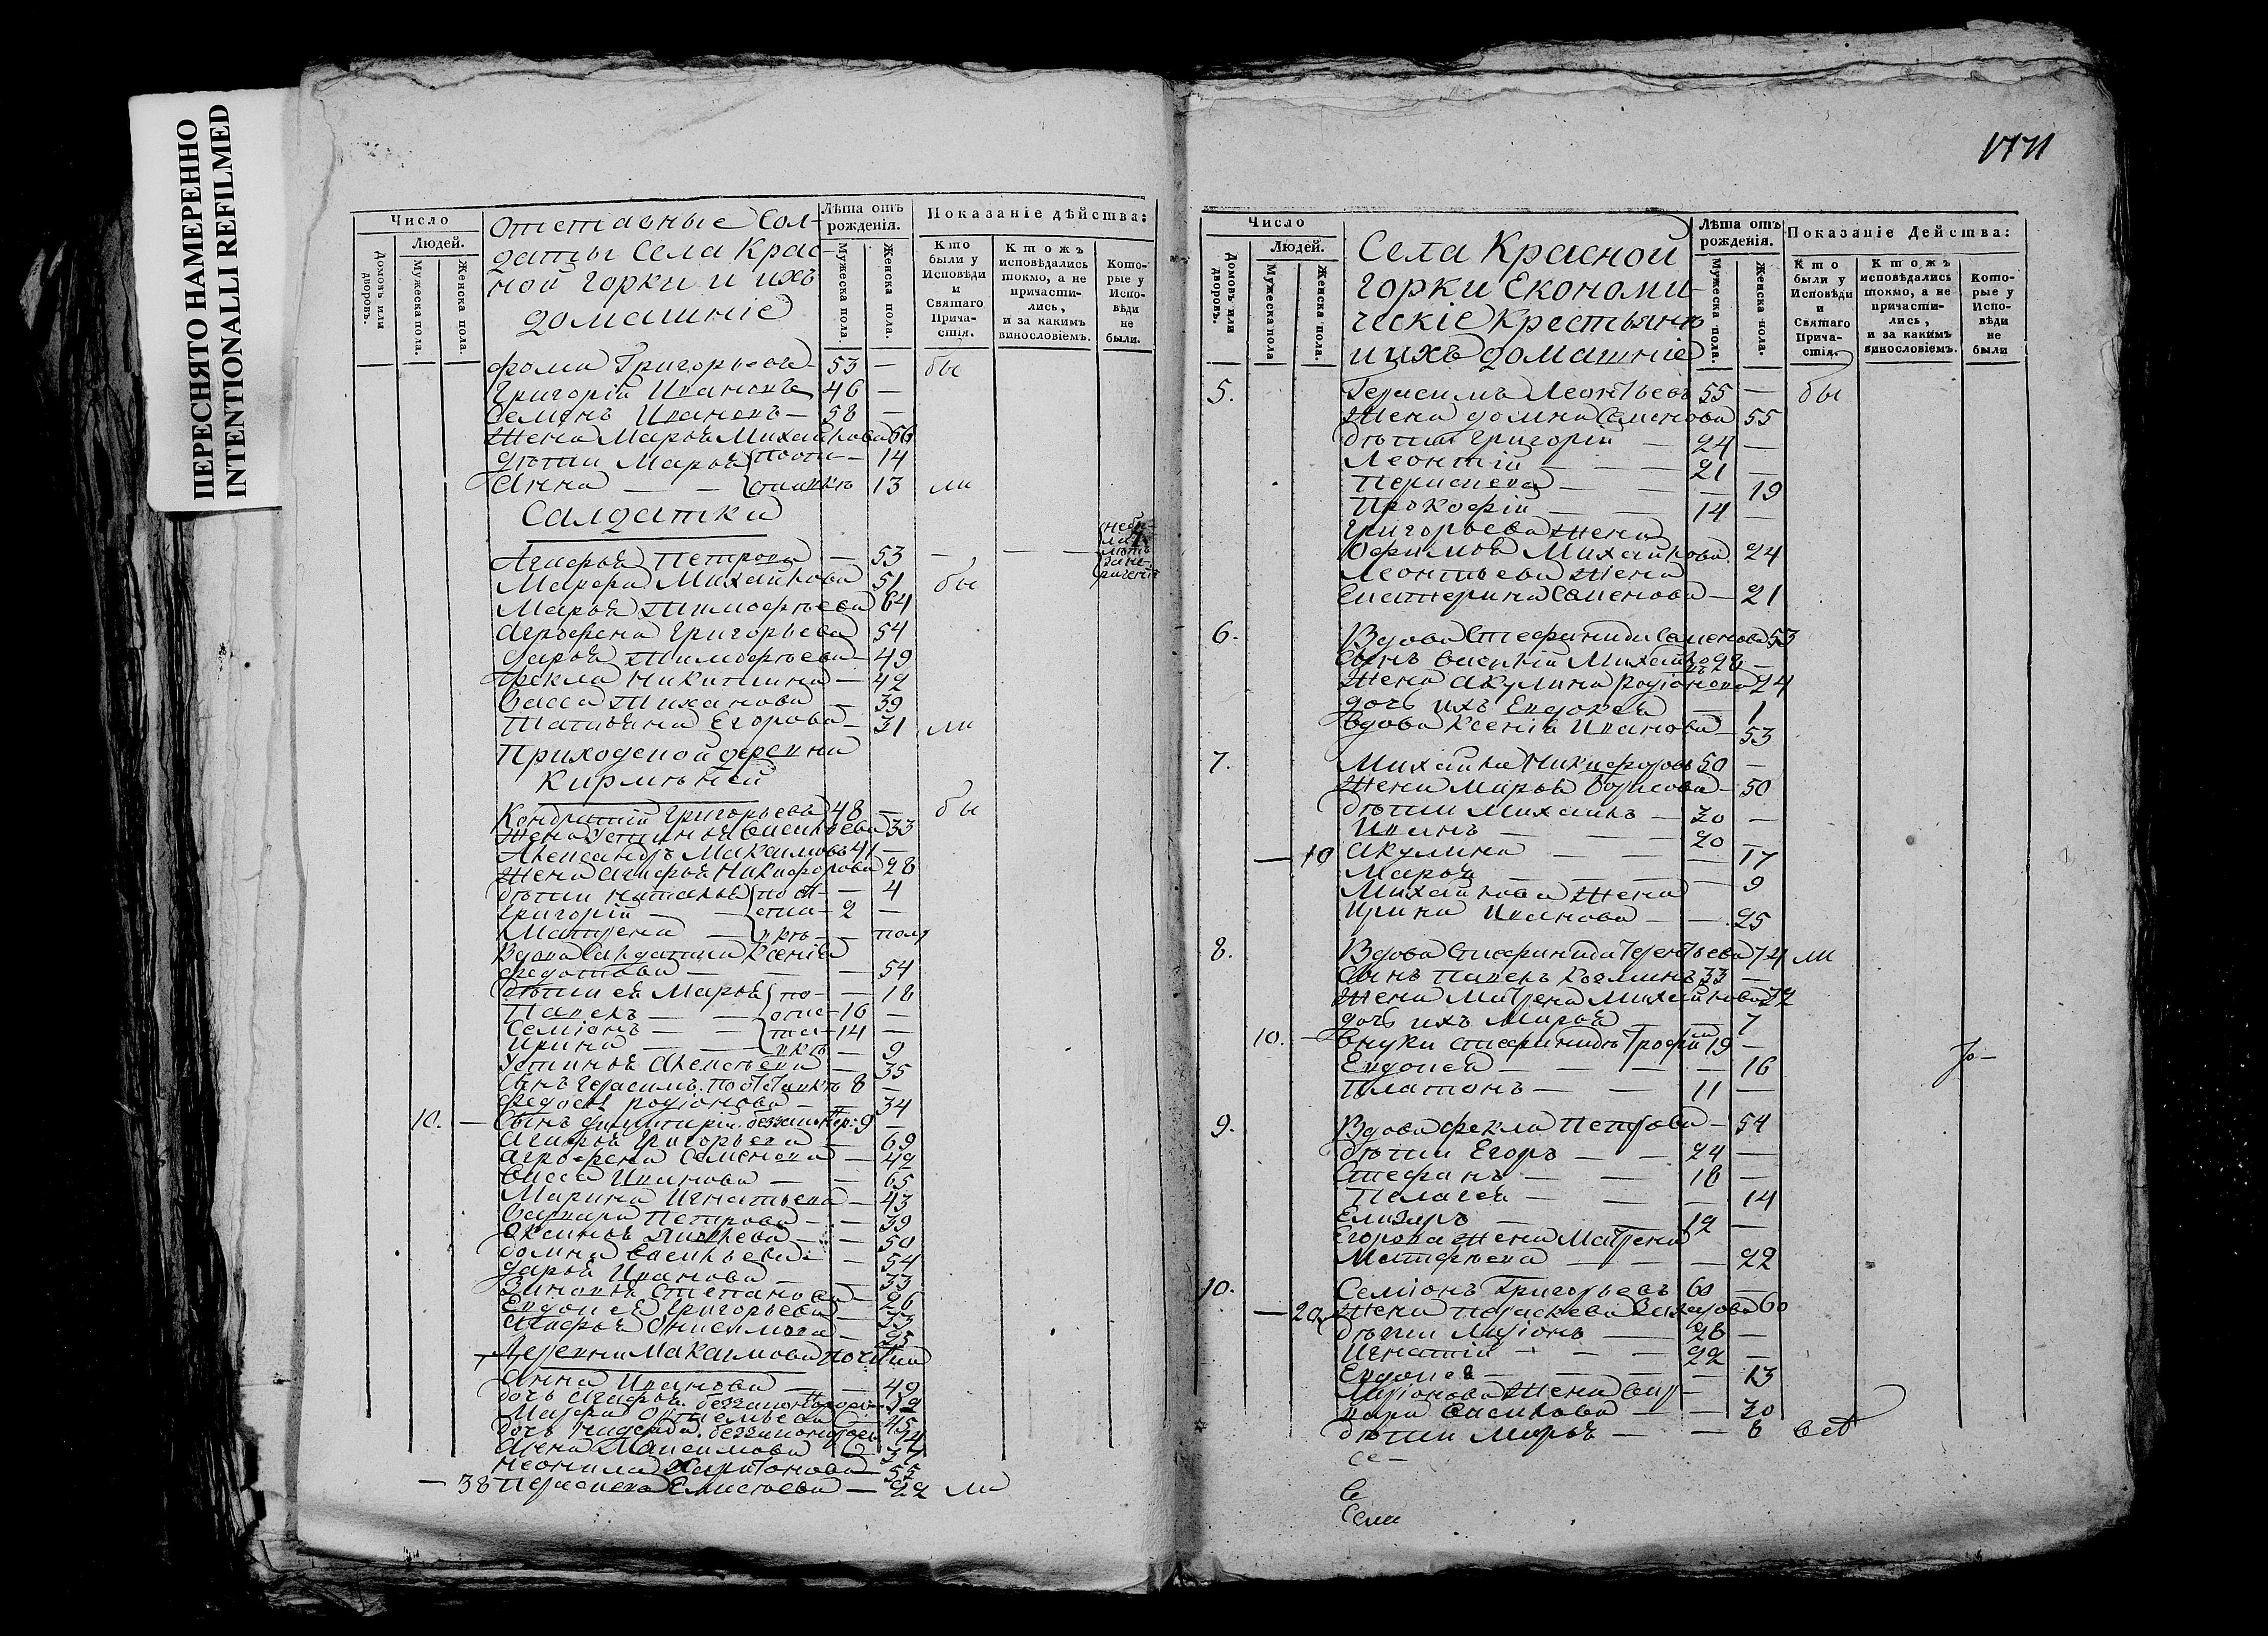 ПЕРЕСНЯТО НАМЕРЕННО
INTENTIONALLI REFILMED
Число
Людей.
Домовъ или дворовъ.
Мужеска пола.
Женска пола.
Отставные Сол-
даты Села Крас-
ной Горки и ихъ
домашніе
Лѣта отъ рожденія.
Мужеска пола.
Женска пола.
Показаніе дѣйства:
Кто были у Исповѣди и Святаго Прича-
стія.
Ктожъ исповѣдались токмо, а не причасти-
лись, и за какимъ винословіемъ.
Кото-
рые у Испо-
вѣди не были.
Фома Григорьевъ 53 — бы
Григорій Ивановъ 46 —
Семенъ Ивановъ — 58 —
Жена Марья Михайлова 56
Дѣти Марья — 14
Анна — — 13 ли
Салдатки
Агафья Петрова — 53 — — —
Марфа Михайлова 51 бы
Марья Тимофѣева 64
Агрофена Григорьева 54
Дарья Тимофѣева — 49
Фекла Никитина — 42
Васса Тиханова — 39
Татьяна Егорова — 31 ли
Приходской деревни
Кирмѣлей
Кондратій Григорьевъ 48 — бы
Жена Устинья Васильева 33
Александръ Макаимовъ 41 —
Жена Агафья Никифорова 28
Дѣти Наталья — 4
Григорій — 2 —
Матрена — пол
Вдова Салдатка Ксенія
Федотова — — 54
Дѣти ея Марья — 18
Павелъ — — 16 —
Семіонъ — — 14 —
Ирина — — 9
Устинья Алексѣева — 35
Сынъ Герасимъ 8 —
Федосья Родіонова — 34
10. — Сынъ Димитрій 9 —
Агафья Григорьева — 69
Агрофена Семенова — 42
Васса Иванова — 65
Марина Игнатьева — 43
Варвара Петрова — — 39
50
Домна Васильева — 54
Дарья Иванова — 33
Зиновья Степанова — 26
Евдокія Григорьева — 33
Агафья Онисимова — 25
Деревни Макаимова Починка
Анна Иванова — — 49
Дочь Агафья
Марфа
Дочь Надежда
Анна Максимова
Неонила Харитонова — 55
— 38 Парасковья Елисѣева — 22 ли
Число
Людей.
Домовъ или дворовъ.
Мужеска пола
Женска пола.
Села Красной
Горки Економи-
ческіе Крестьянѣ
и ихъ домашніе
Лѣта отъ рожденія.
Мужеска пола.
Женска пола.
Показаніе Дейсства:
Кто были у Исповѣди и Святаго Прича-
стія.
Ктожъ исповѣдались токмо, а не причасти-
лись, и за какимъ винословіемъ.
Кото-
рые у Испо-
вѣди не были
5. Герасимъ Леонтьевъ 55 — бы
Жена Домна Семенова 55
Дѣти Григорій — 24 —
Леонтій — — — 21 —
Парасковья — — — 19
Прокофій — — 14 —
Григорьева Жена
Офимья Михайлова 24
Леонтьева Жена
Екатерина Семенова — 21
6. Вдова Стефанида Семенова 53
Сынъ Василій Михайловъ 28 —
Жена Акулина Родіонова 24
Дочь ихъ Евдокея — 1
Вдова Ксенія Иванова — 53
7. Михайла Никифоровъ 50 —
Жена Марья Борисова — 50
Дѣти Михаилъ — 30 —
Иванъ — — 20 —
— 10 Акулина — — — 17
Марья — — — 9
Михайлова Жена
Ирина Иванова — — 25
8. Вдова Стефанида Терентьева 74 ли
Сынъ Павелъ Козминъ 33 —
Жена Матрена Михайлова 32
Дочь ихъ Марья — 7
10. — Внуки Стефаниды Трофим 19 —
Евдокея — — — — 16
Платонъ — — 11 —
9. Вдова Фекла Петрова — 54
Дѣти Егоръ — — 24 —
Стефанъ — — 18 —
Пелагея — — — 14
Елизаръ — — 12 —
Егорова Жена Матрена
Матфѣева — — — 22
10. Семіонъ Григорьевъ 60 —
— 20 Жена Парасковья Захарова 60
Дѣти Ларіонъ — 28 —
Игнатій — — — 22 —
Евдокея — — — — 13
Ларіонова Жена Вар-
вара Василова — — 30
Дѣти Марья — — 6